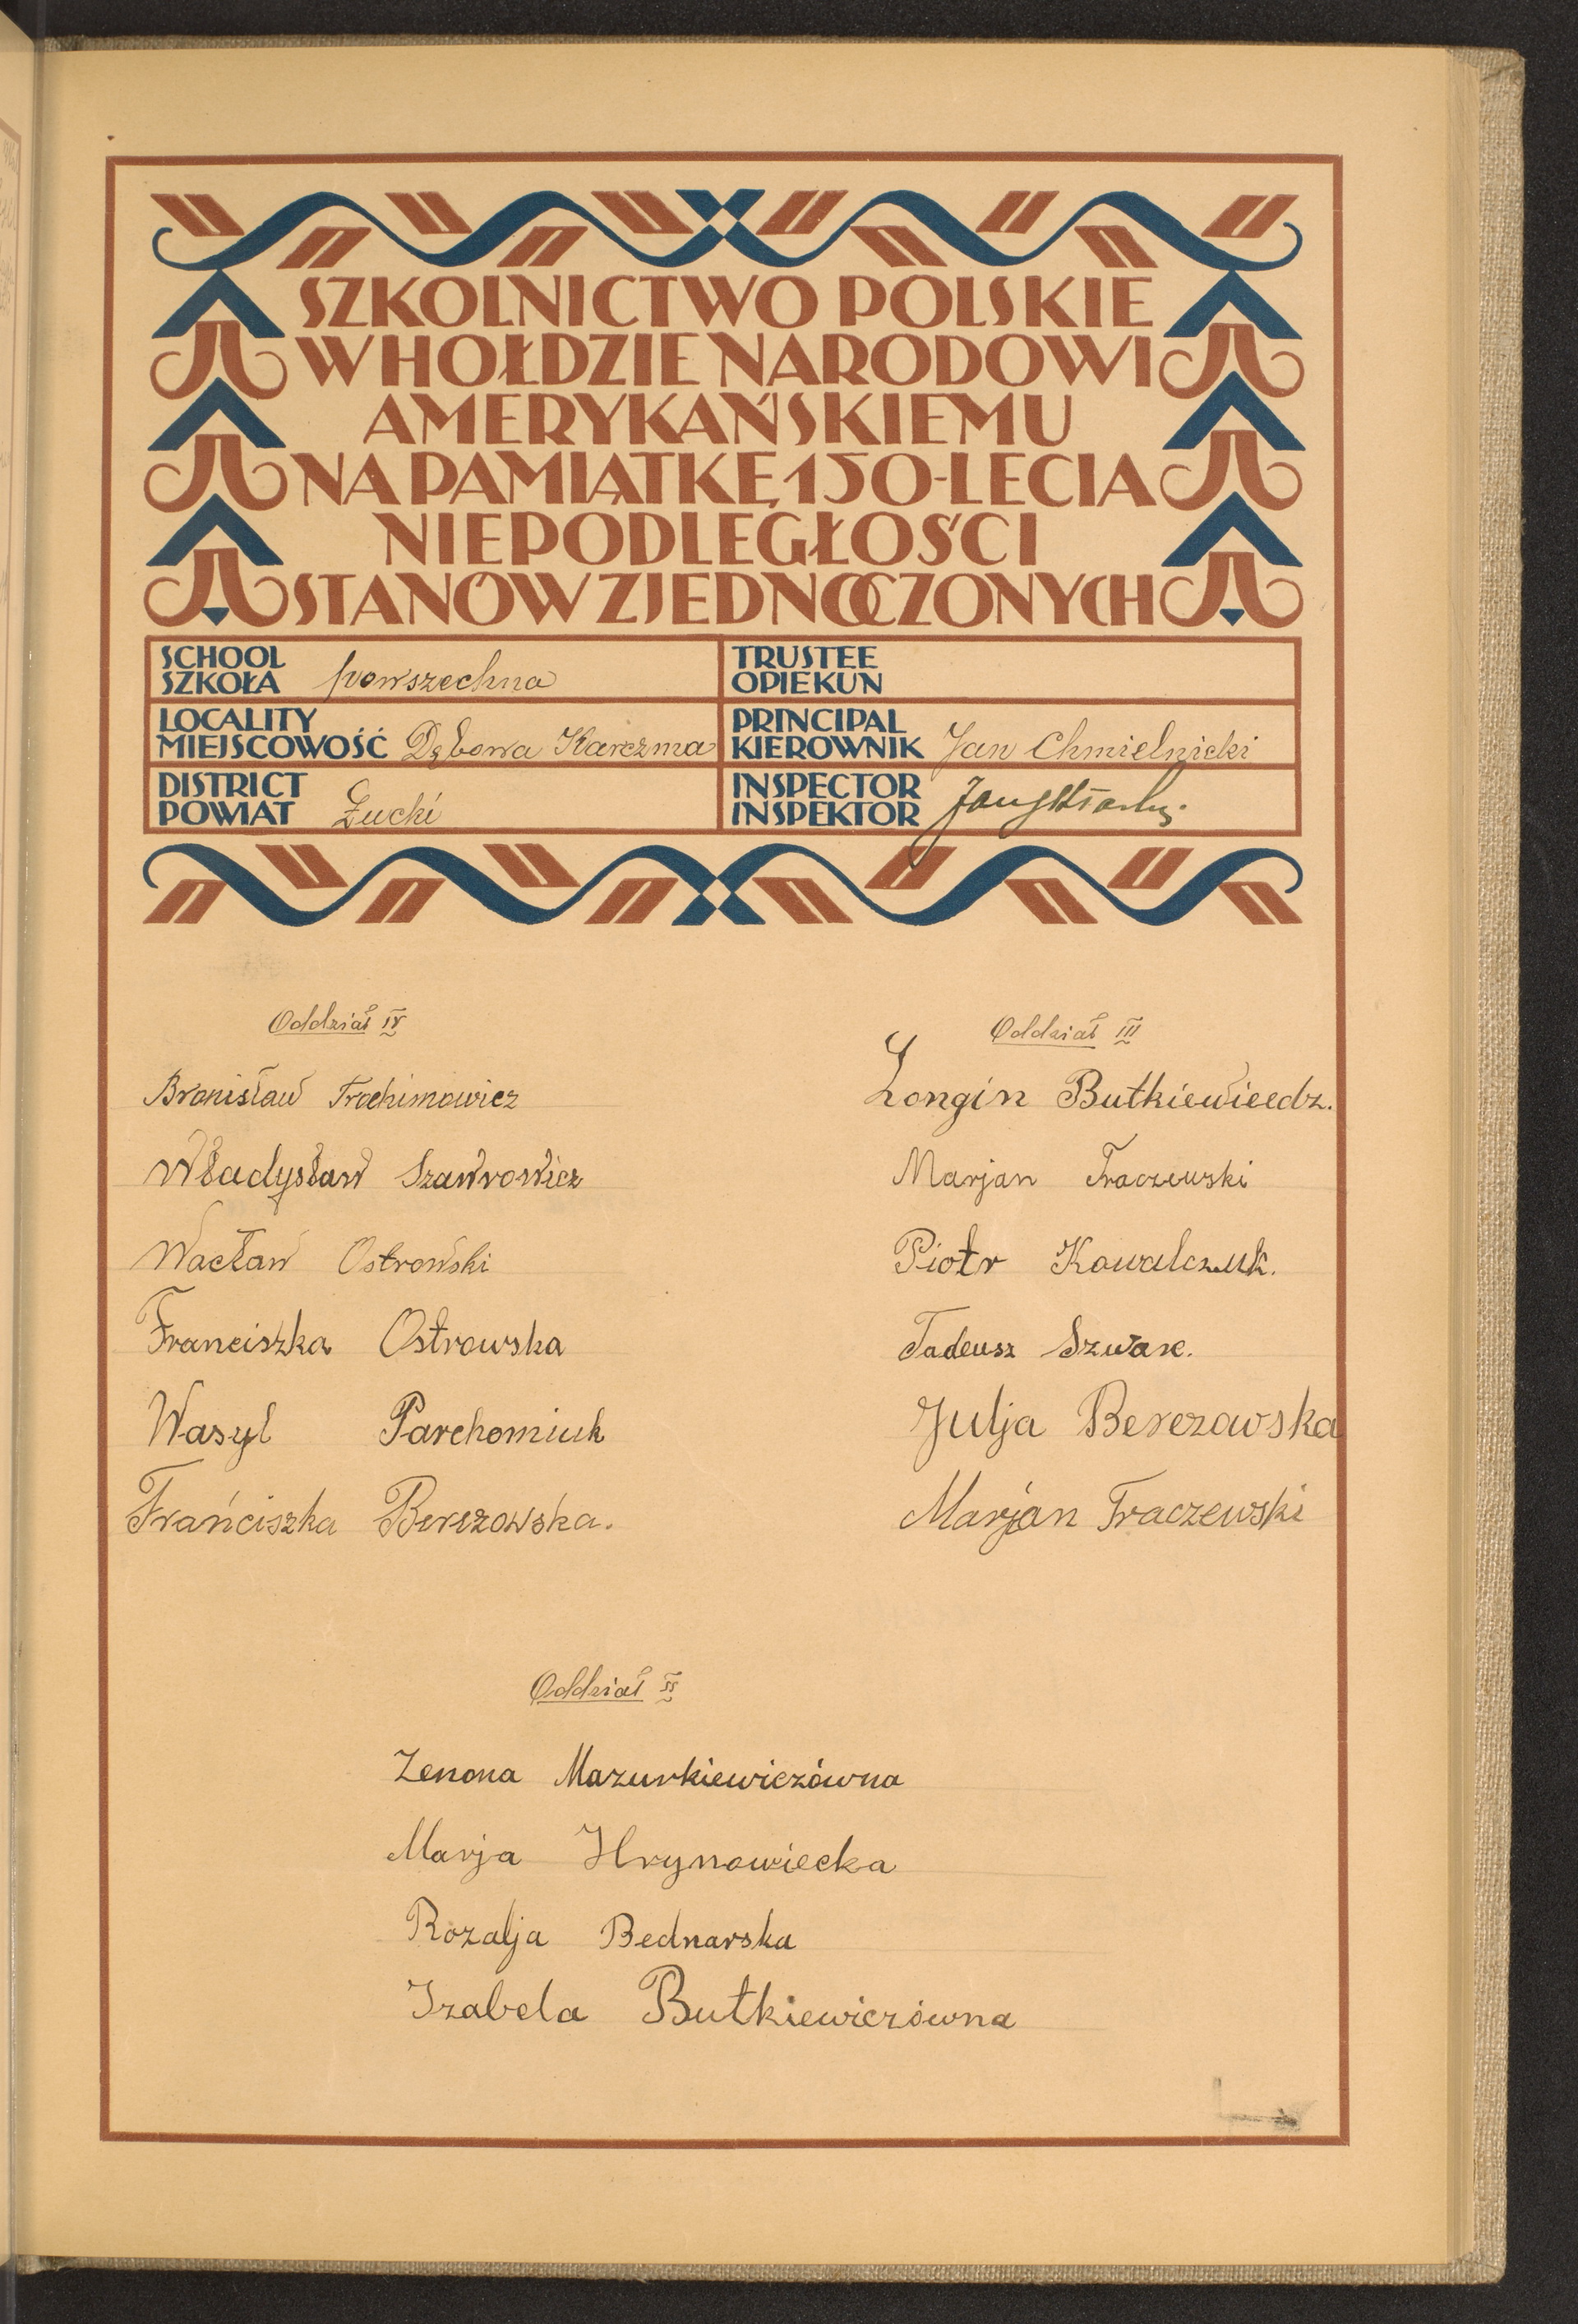 SZKOLNICTWO POLSKIE
W HOŁDZIE NARODOWI
AMERYKAŃSKIEMU
NA PAMIĄTKĘ 150-LECIA
NIEPODLEGŁOŚCI
STANÓW ZJEDNOCZONYCH
SCHOOL
SZKOŁA powszechna
TRUSTEE
OPIEKUN
LOCALITY
MIEJSCOWOŚĆ Dębowa Karczma
PRINCIPAL
KIEROWNIK Jan Chmielnicki
DISTRICT
POWIAT Łucki
INSPECTOR
INSPEKTOR
Oddział IV
Bronisław Trochimowicz
Władysław Szawrowicz
Wacław Ostrowski
Franciszka Ostrowska
Wasyl Parchomiuk
Frańciszka Berezowska.
Oddział III
Longin Butkiewieedz.
Marjan Traczewski
Piotr Kowalczuk.
Tadeusz Szwarc.
Julja Berezowska
Marjan Traczewski
Oddział II
Zenona Mazurkiewiczówna
Marja Hrynowiecka
Rozalja Bednarska
Izabela Butkiewiczówna